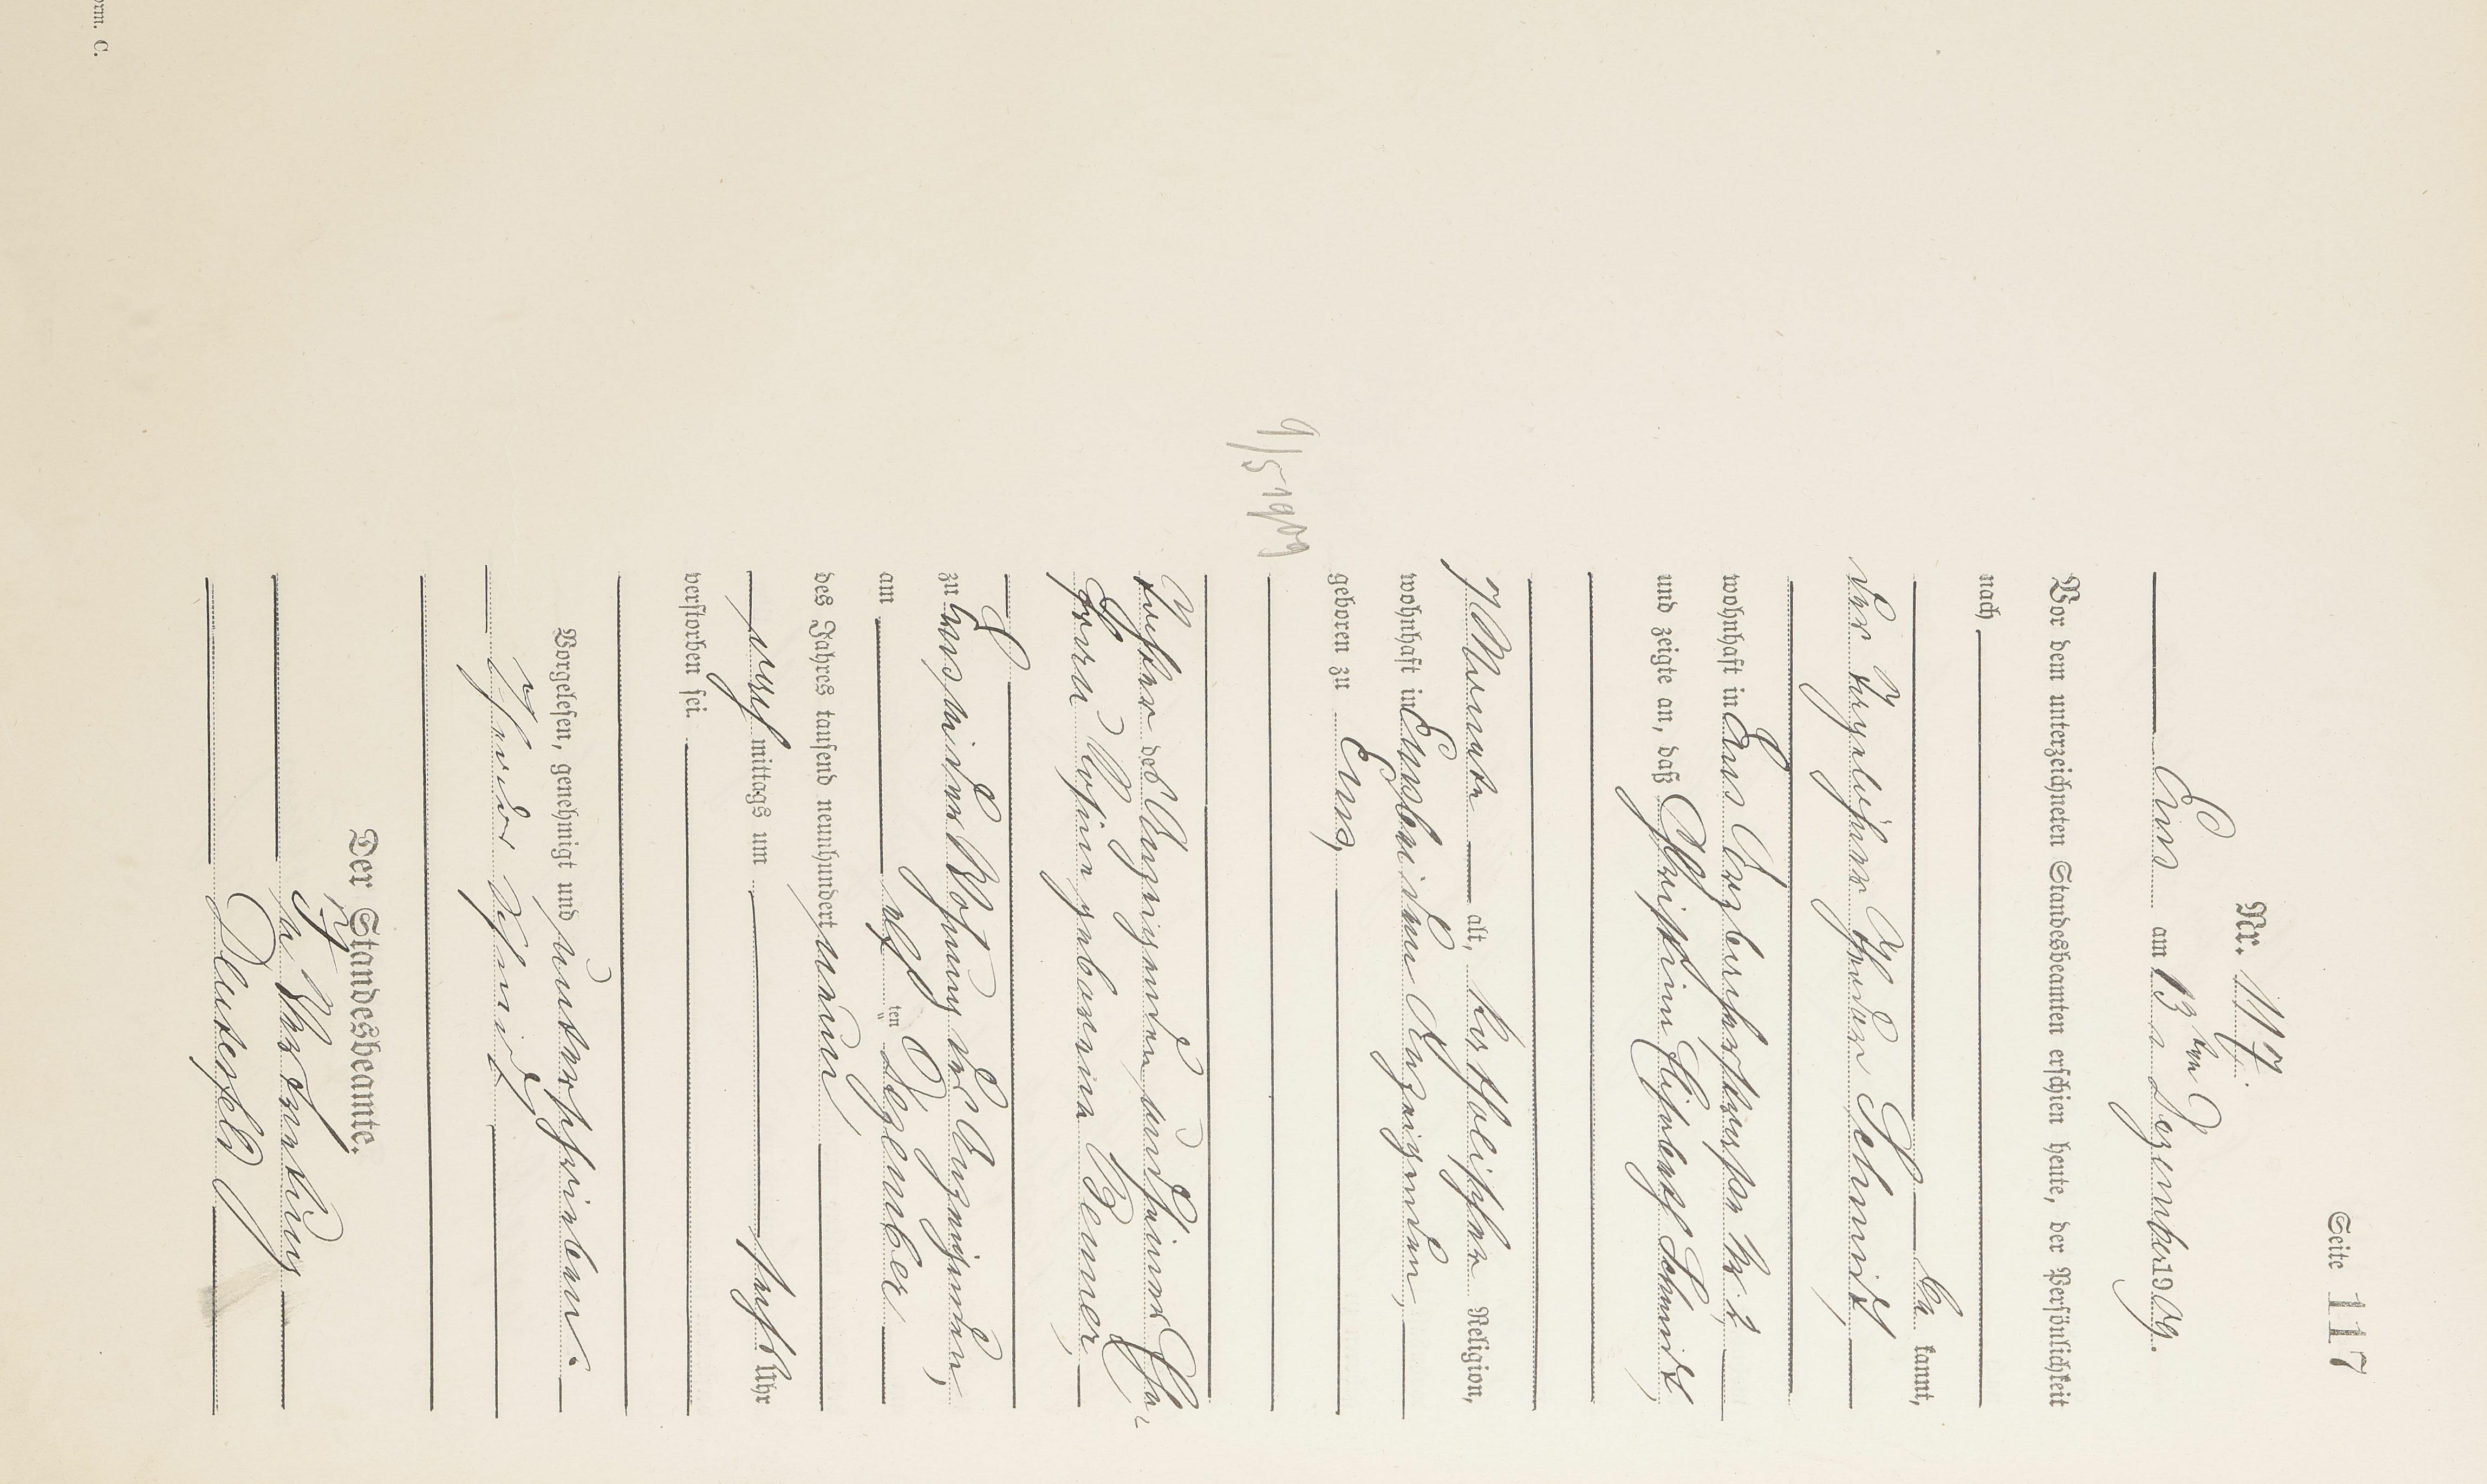 Seite 117
Nr. 117.
Ems am 13 ten Dezember 1909.
Vor dem unterzeichneten Standesbeamten erschien heute, der Persönlichkeit
nach
be kannt,
der Tagelöhner Theodor Schmidt,
wohnhaft in Ems Arzbacherstrasse Nr
und zeigte an, daß Christine Elisabeth Schmidt,
7 Monate alt, katholischer Religion,
wohnhaft in Ems bei dem Anzeigenden,
geboren zu Ems,
9/5 1909
Tochter des Anzeigenden und seiner Ehe-
frau Rosine geborenen Bemer,
zu Ems, in der Wohnung des Anzeigenden,
am elf ten Dezember
des Jahres tausend neunhundert neun,
nach mittags um sechs Uhr
verstorben sei.
Vorgelesen, genehmigt und unterschrieben.
Theodor Schmidt
Der Standesbeamte.
In Vertretung
orm. C.